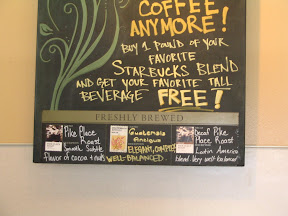 COFFEE
ANYMORE!
BUY 1 POUND OF YOUR
FAVORITE
STARBUCKS BLEND
AND GET YOUR FAVORITE TALL
BEVERAGE FREE!
FRESHLY BREWED
Pike Place
Roast
Smooth, Subtle
flavor of cocoa +
Guatemala
Antigua
ELEGANT, COMPLEX
WELL-BALANCED.
Decaf Pike
Place Roast
Latin America
blend. Very well balanced